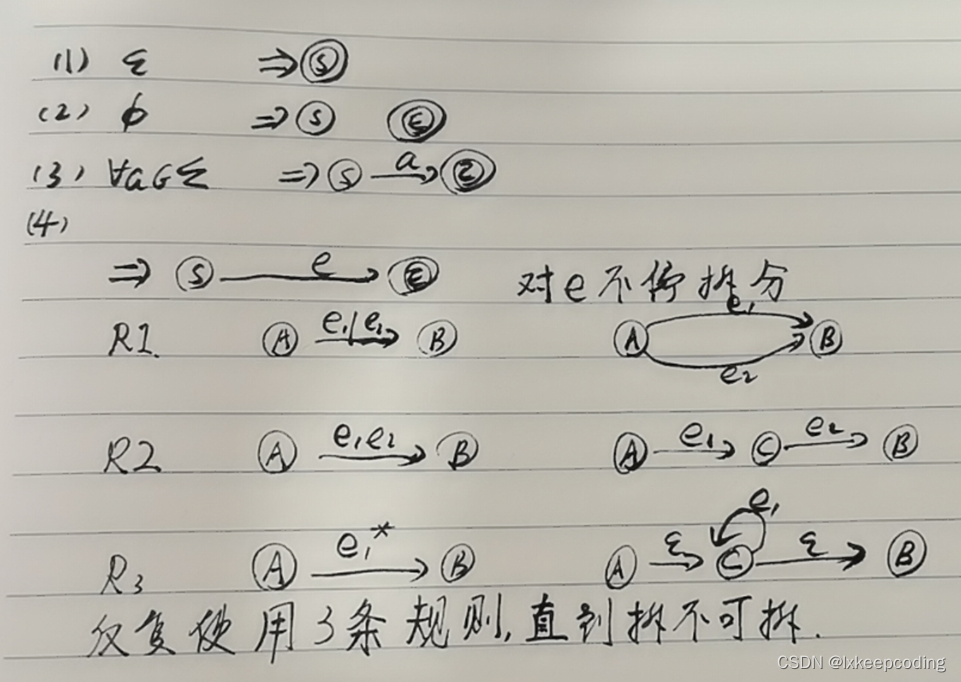 (1) ε ⇒ S
(2) ϕ ⇒ S E
(3) ∀a∈Σ ⇒ S a Z
(4)
⇒ S e E 对e不停拆分
R1 A e₁|e₁ B A e₁ e₂ B
R2 A e₁e₂ B A e₁ C e₂ B
R3 A e₁* B A ε C e₁ ε B
反复使用3条规则,直到拆不可拆.
CSDN @lxkeepcoding